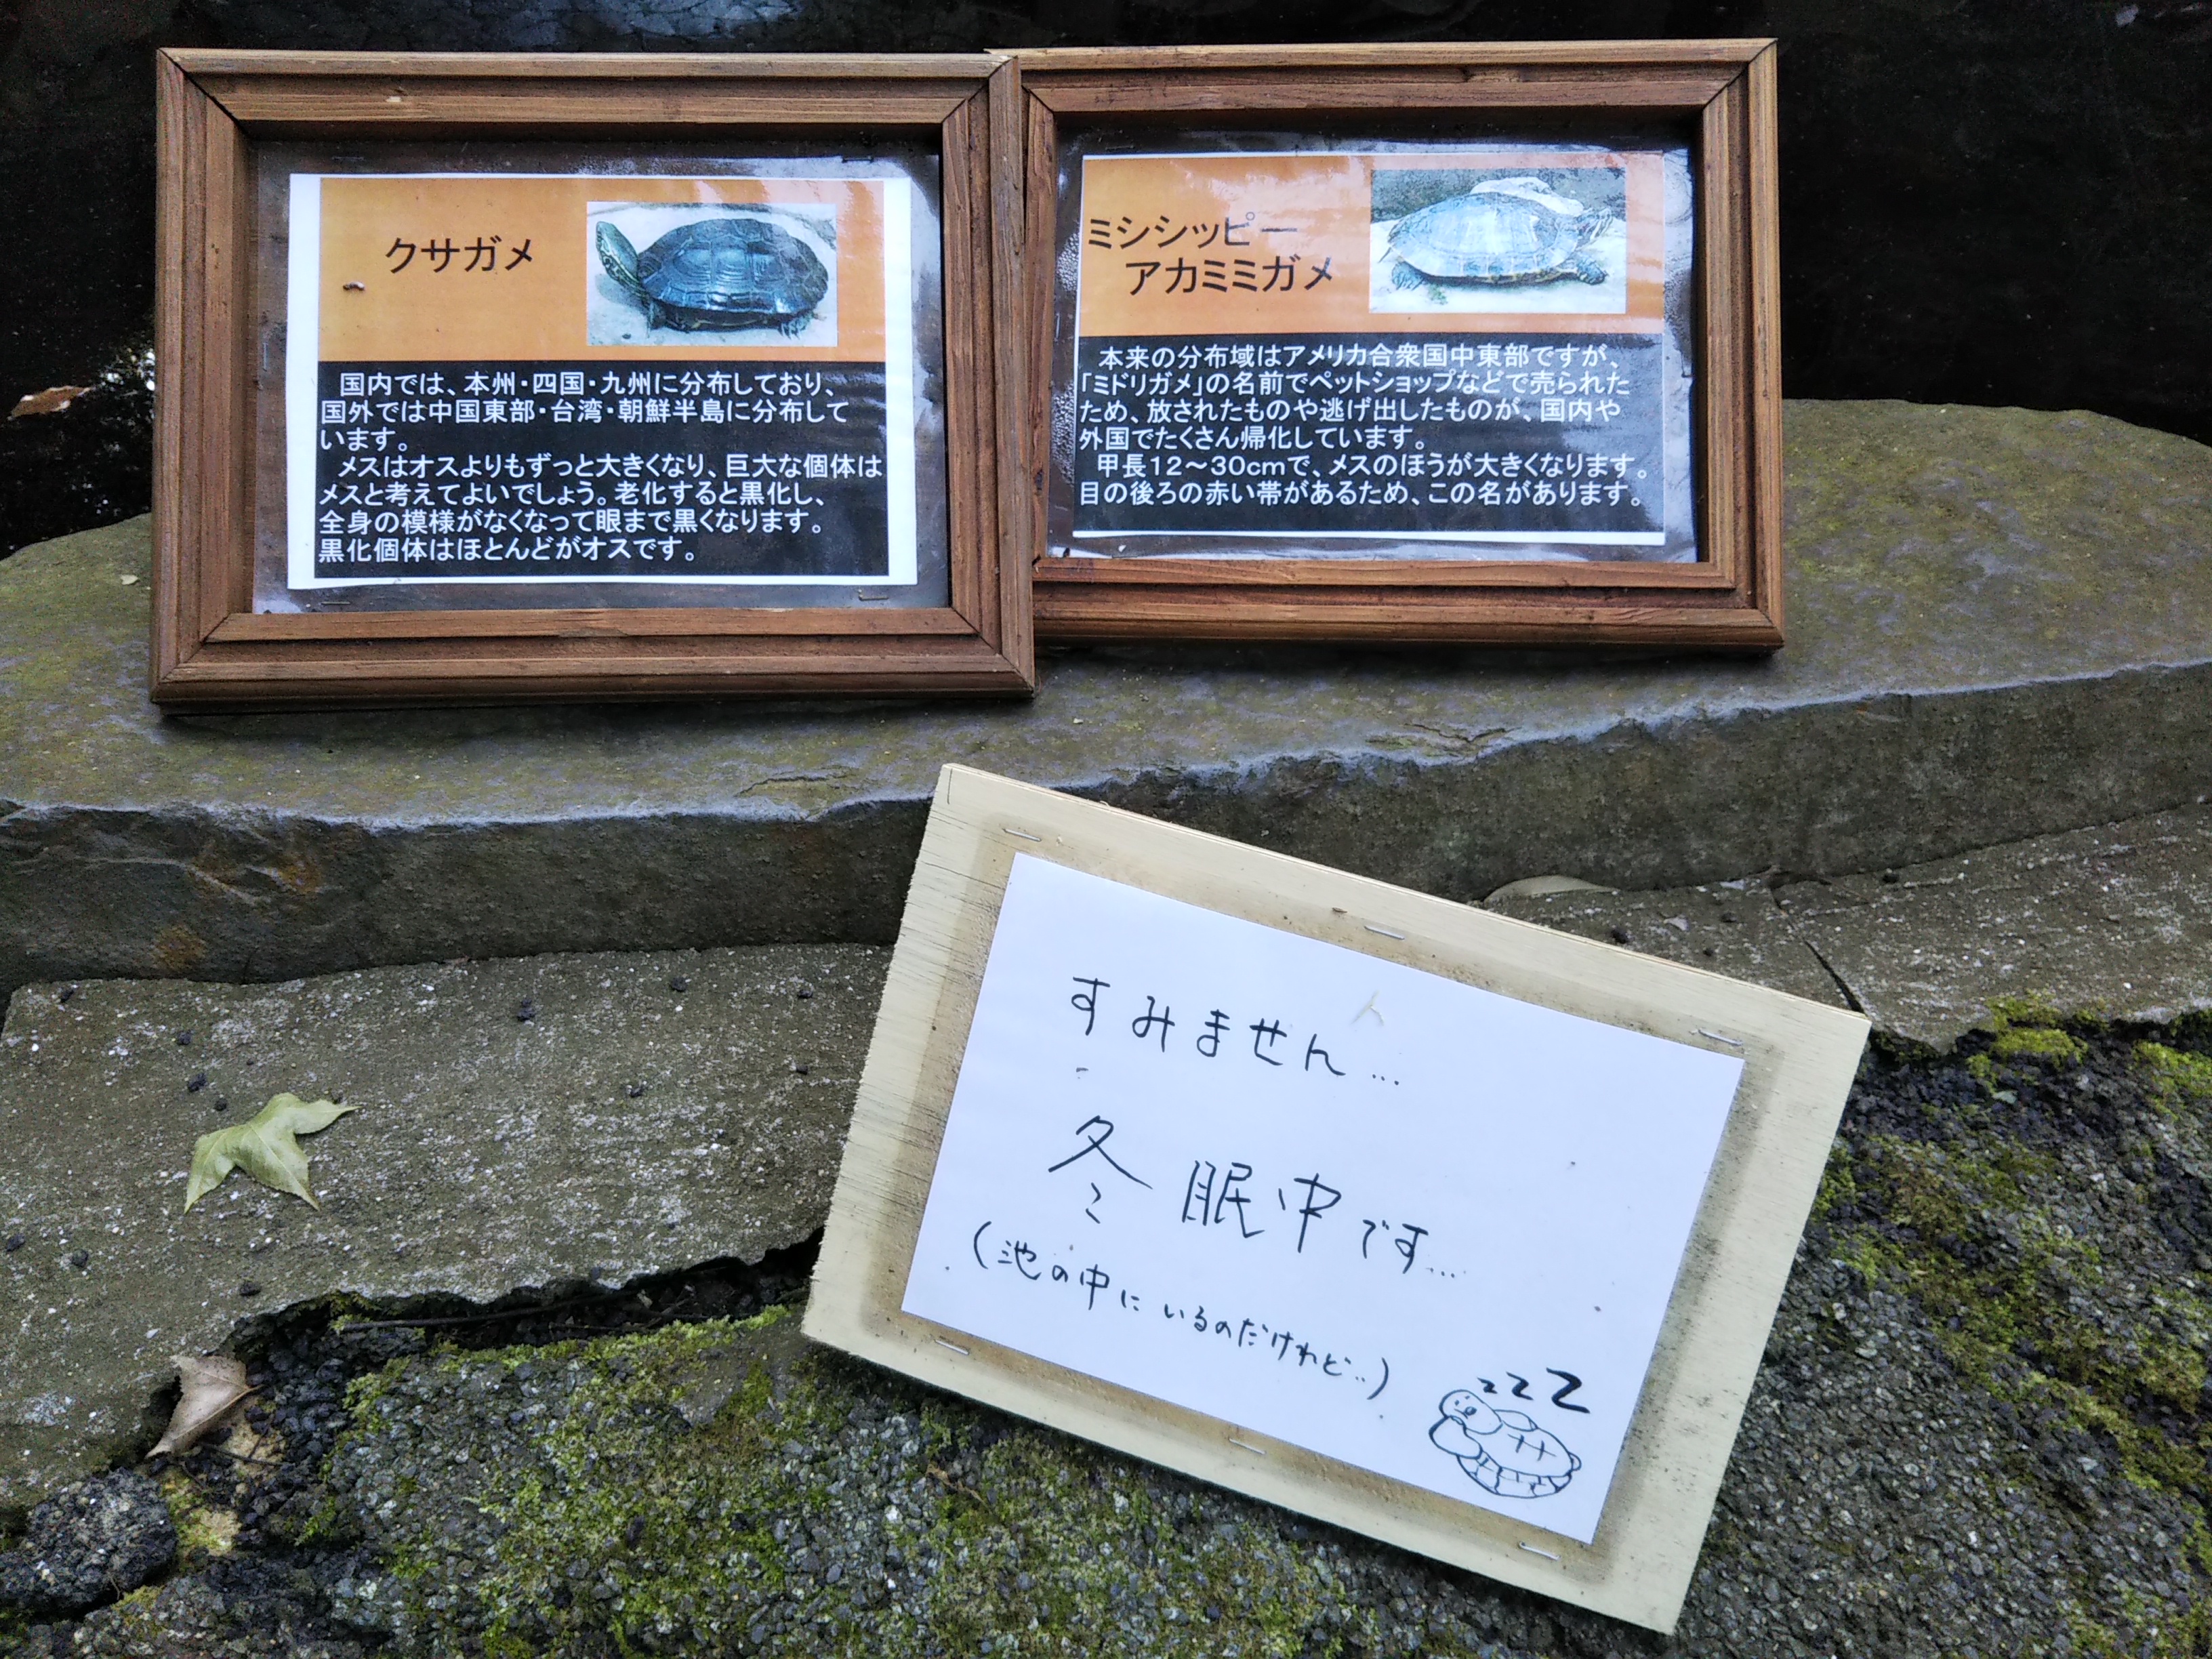 クサガメ
国内では、本州・四国・九州に分布しており、
国外では中国東部・台湾・朝鮮半島に分布して
います。
メスはオスよりもずっと大きくなり、巨大な個体は
メスと考えてよいでしょう。老化すると黒化し、
全身の模様がなくなって眼まで黒くなります。
黒化個体はほとんどがオスです。
ミシシッピー
アカミミガメ
本来の分布域はアメリカ合衆国中東部ですが、
「ミドリガメ」の名前でペットショップなどで売られた
ため、放されたものや逃げ出したものが、国内や
外国でたくさん帰化しています。
甲長12～30cmで、メスのほうが大きくなります。
目の後ろの赤い帯があるため、この名があります。
すみません…
冬眠中です…
(池の中にいるのだけれど…)
zzz